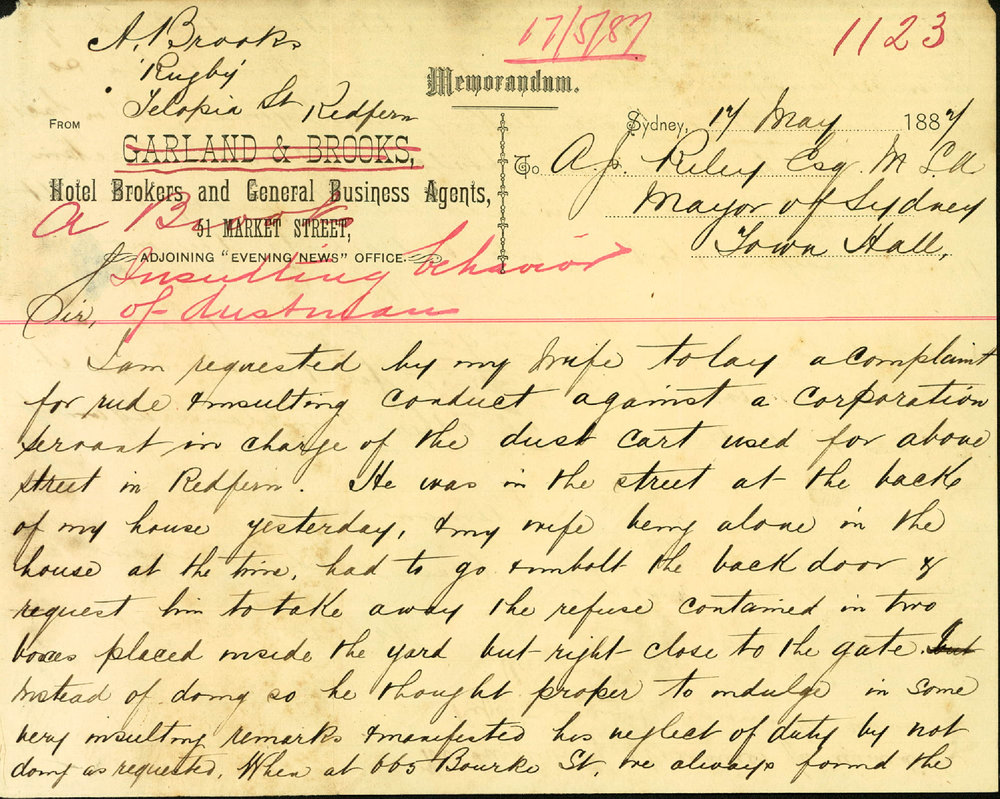 A. Brooks
'Rugby'
Telopia St Redfern
17/5/87
1123
Memorandum.
FROM
GARLAND & BROOKS,
Hotel Brokers and General Business Agents,
51 MARKET STREET,
ADJOINING "EVENING NEWS" OFFICE.
Sydney, 17 May 1887
To A. J. Riley Esq M L A
Mayor of Sydney
Town Hall,
A Brooks
Insulting behavior
of dustman
Sir,
I am requested by my Wife to lay a complaint
for rude & insulting conduct against a Corporation
servant in charge of the dust cart used for above
street in Redfern. He was in the street at the back
of my house yesterday, & my wife being alone in the
house at the time, had to go & unbolt the back door &
request him to take away the refuse contained in two
boxes placed inside the yard but right close to the gate. but
Instead of doing so he thought proper to indulge in some
very insulting remarks & manifested his neglect of duty by not
doing as requested. When at 605 Bourke St. we always found the